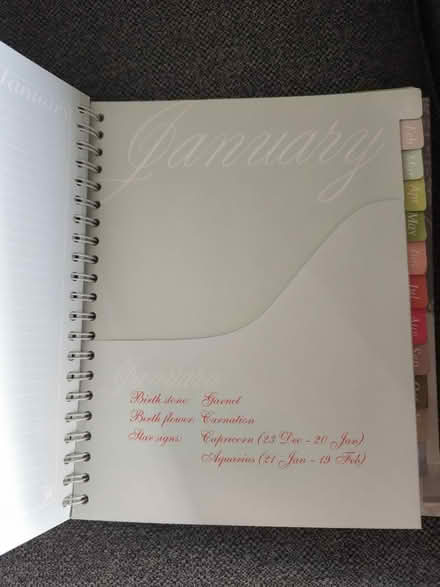 January
January
Feb
Mar
Apr
May
Jun
Jul
Aug
January
Birth stone: Garnet
Birth flower: Carnation
Star signs: Capricorn (23 Dec - 20 Jan)
Aquarius (21 Jan - 19 Feb)